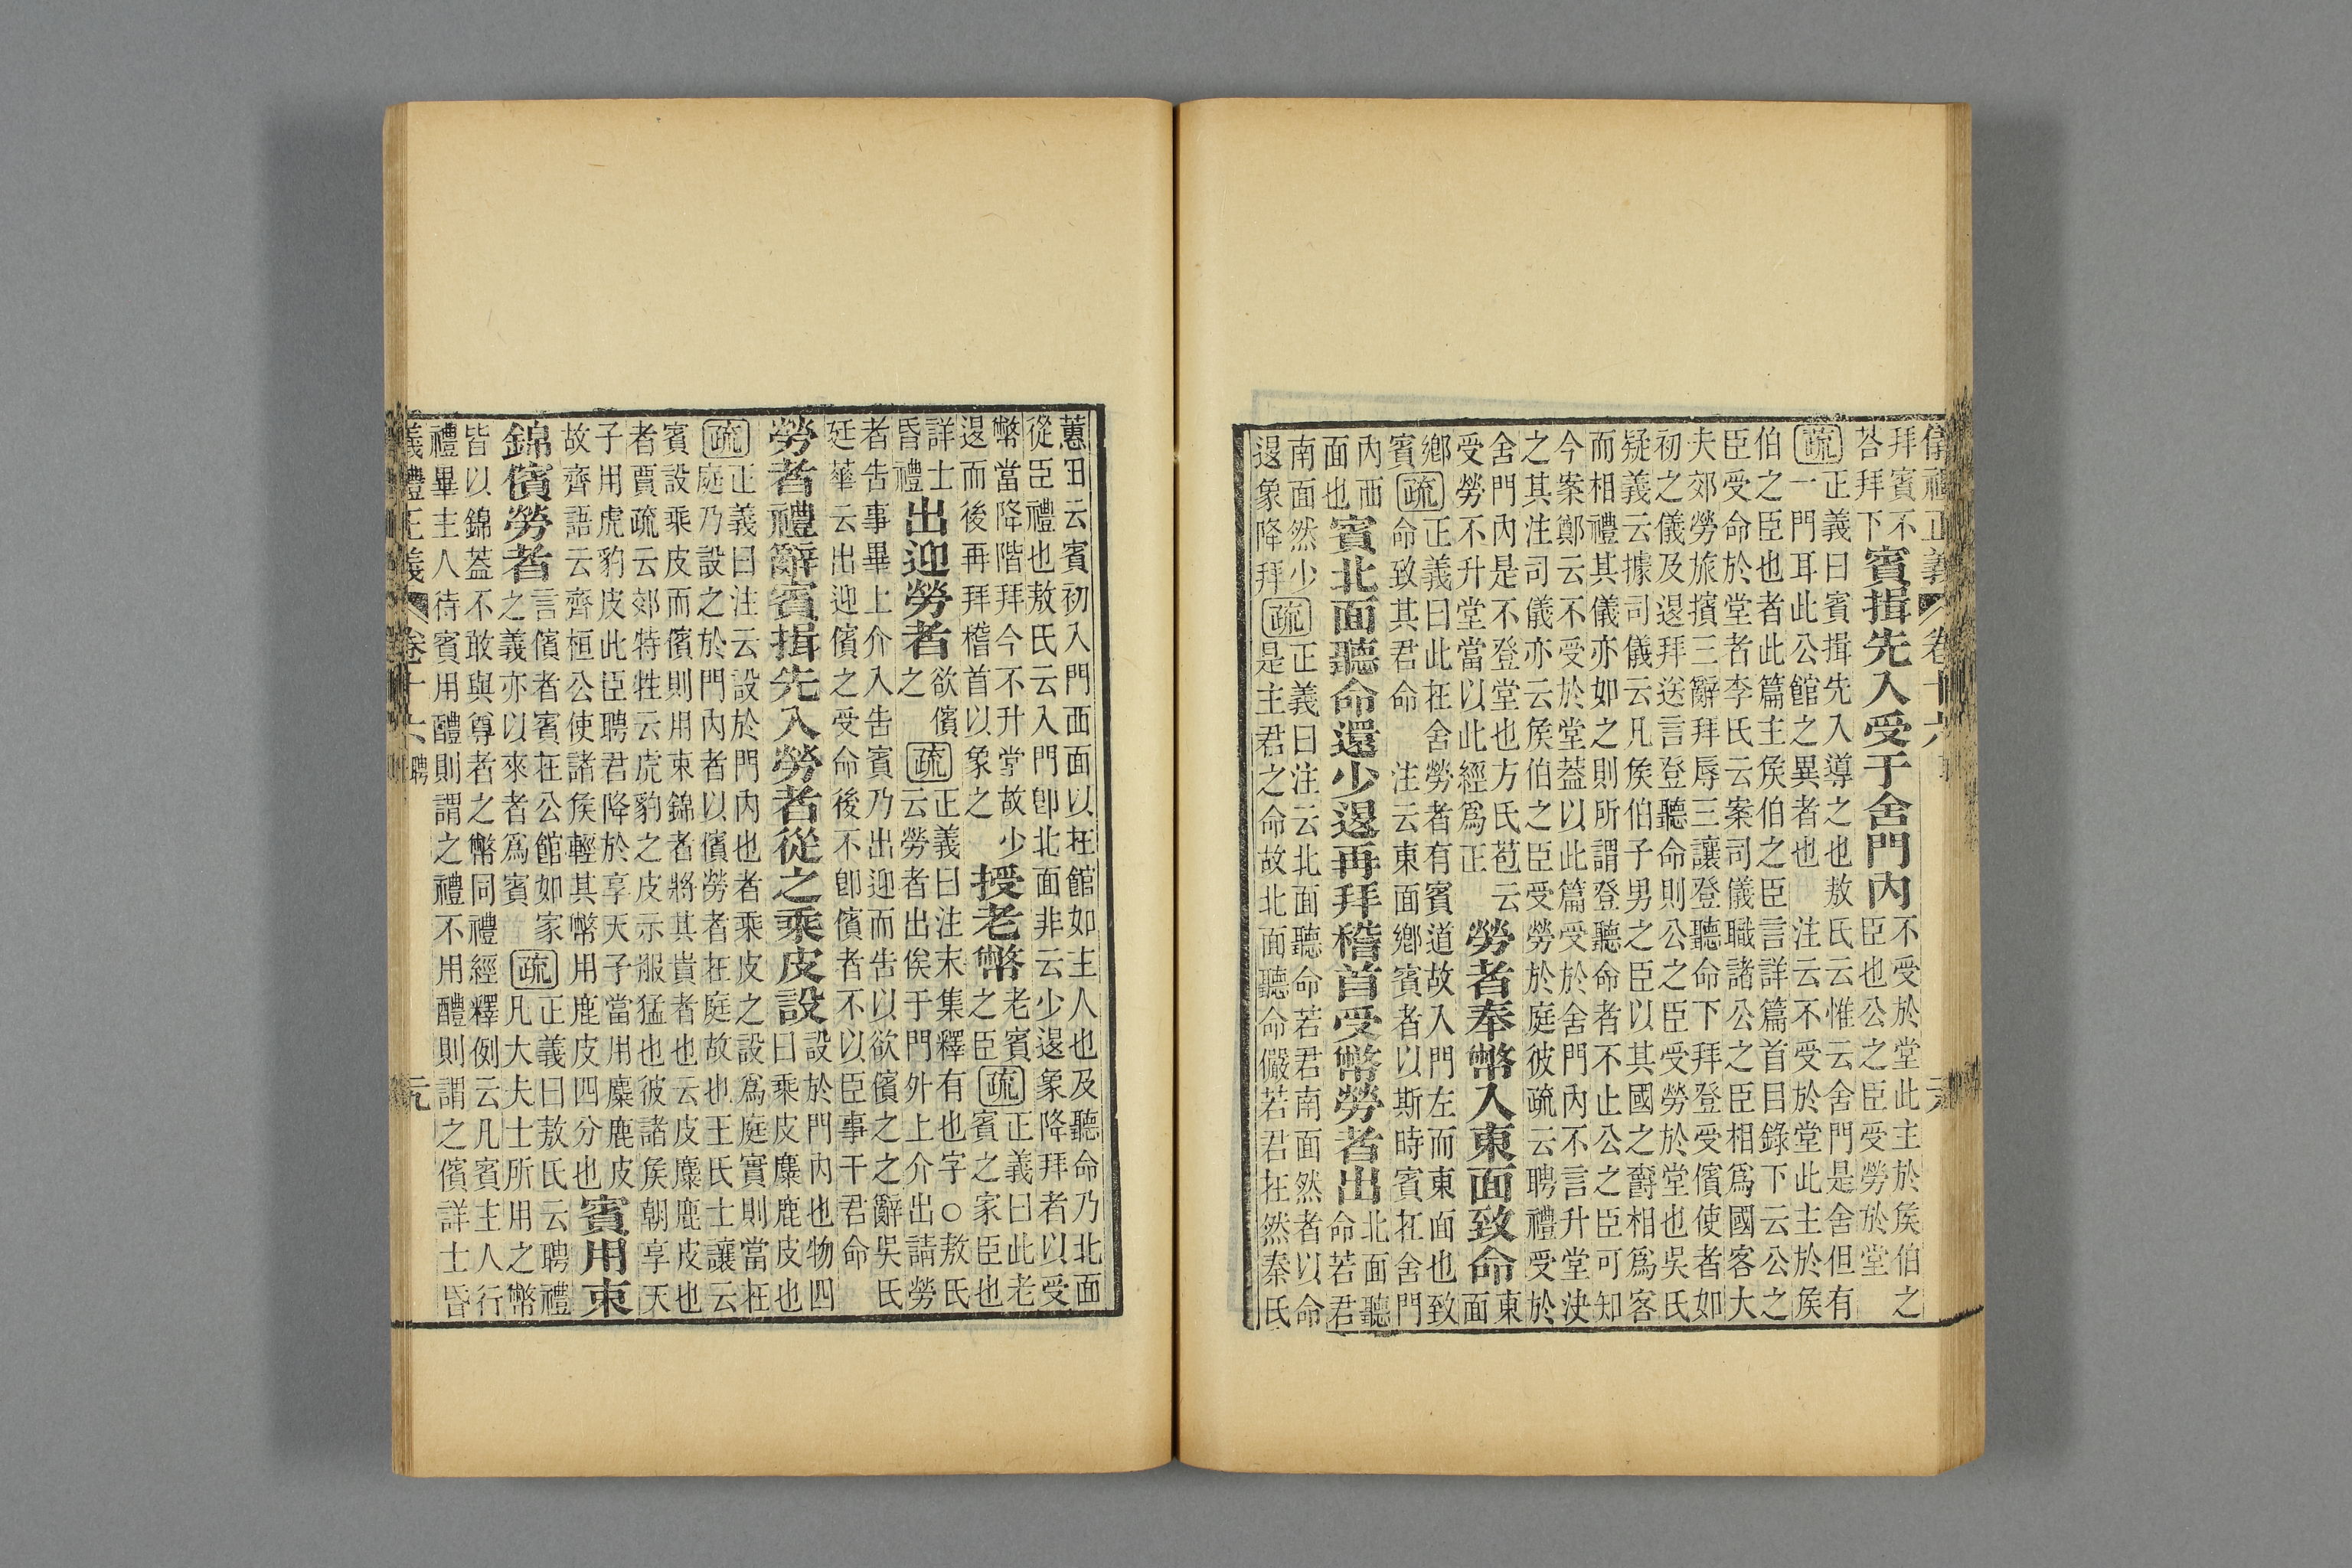 儀禮正義 卷十六
拜賓不
荅拜下
賓揖先入受于舍門內
不受於堂此主於矦伯之
臣也公之臣受勞於堂
疏
正義曰賓揖先入導之也敖氏云惟云舍門是舍但有
一門耳此公館之異者也 注云不受於堂此主於矦
伯之臣也者此篇主矦伯之臣言詳篇首目錄下云公之
臣受命於堂者李氏云案司儀職諸公之臣相爲國客大
夫郊勞旅擯三辭拜辱三讓登聽命下拜登受儐使者如
初之儀及退拜送言登聽命則公之臣受勞於堂也吳氏
疑義云據司儀云凡矦伯子男之臣以其國之爵相爲客
而相禮其儀亦如之則所謂登聽命者不止公之臣可知
今案鄭云不受於堂蓋以此篇受於舍門內不言升堂決
之其注司儀亦云矦伯之臣受勞於庭彼疏云聘禮受於
舍門內是不登堂也方氏苞云
受勞不升堂當以此經爲正
勞者奉幣入東面致命
東
面
鄉
賓
疏
正義曰此在舍勞者有賓道故入門左而東面也致
命致其君命 注云東面鄉賓者以斯時賓在舍門
內西
面也
賓北面聽命還少退再拜稽首受幣勞者出
北面聽
命若君
南面然少
退象降拜
疏
正義曰注云北面聽命若君南面然者以命
是主君之命故北面聽命儼若君在然秦氏
蕙田云賓初入門西面以在館如主人也及聽命乃北面
從臣禮也敖氏云入門卽北面非云少退象降拜者以受
幣當降階拜今不升堂故少
退而後再拜稽首以象之
授老幣
老賓
之臣
疏
正義曰此老
賓之家臣也
詳士
昏禮
出迎勞者
欲儐
之
疏
正義曰注末集釋有也字○敖氏
云勞者出俟于門外上介出請勞
者告事畢上介入告賓乃出迎而告以欲儐之之辭吳氏
廷華云出迎儐之受命後不卽儐者不以臣事干君命
勞者禮辭賓揖先入勞者從之乘皮設
設於門內也物四
曰乘皮麋鹿皮也
疏
正義曰注云設於門內也者乘皮之設爲庭實則當在
庭乃設之於門內者以儐勞者在庭故也王氏士讓云
賓設乘皮而儐則用束錦者將其貴者也云皮麋鹿皮也
者賈疏云郊特牲云虎豹之皮示服猛也彼諸矦朝享天
子用虎豹皮此臣聘君降於享天子當用麋鹿皮
故齊語云齊桓公使諸矦輕其幣用鹿皮四分也
賓用束
錦儐勞者
言儐者賓在公館如家
之義亦以來者爲賓
疏
正義曰敖氏云聘禮
凡大夫士所用之幣
皆以錦蓋不敢與尊者之幣同禮經釋例云凡賓主人行
禮畢主人待賓用醴則謂之禮不用醴則謂之儐詳士昏
儀禮正義 卷十六 聘